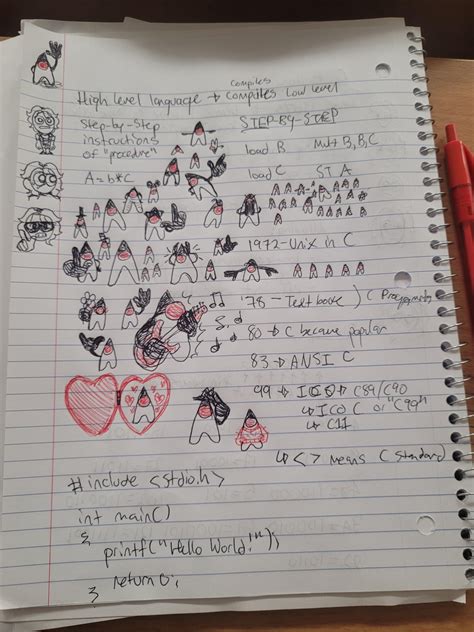 compiles
High level language → compiles low level
Step-by-Step
instructions
of "procedure"
A=b*C
STEP-BY-STEP
load B Mult B,B,C
load C ST A
1972-Unix in C
'78 - Text book) C Programming
80 → C became popular
83 → ANSI C
99 → C89/C90
↳ ISO C or "C99"
↳ C11
↳ < > means C Standard)
#include <stdio.h>
int main()
{
printf("Hello World!");
return 0;
}